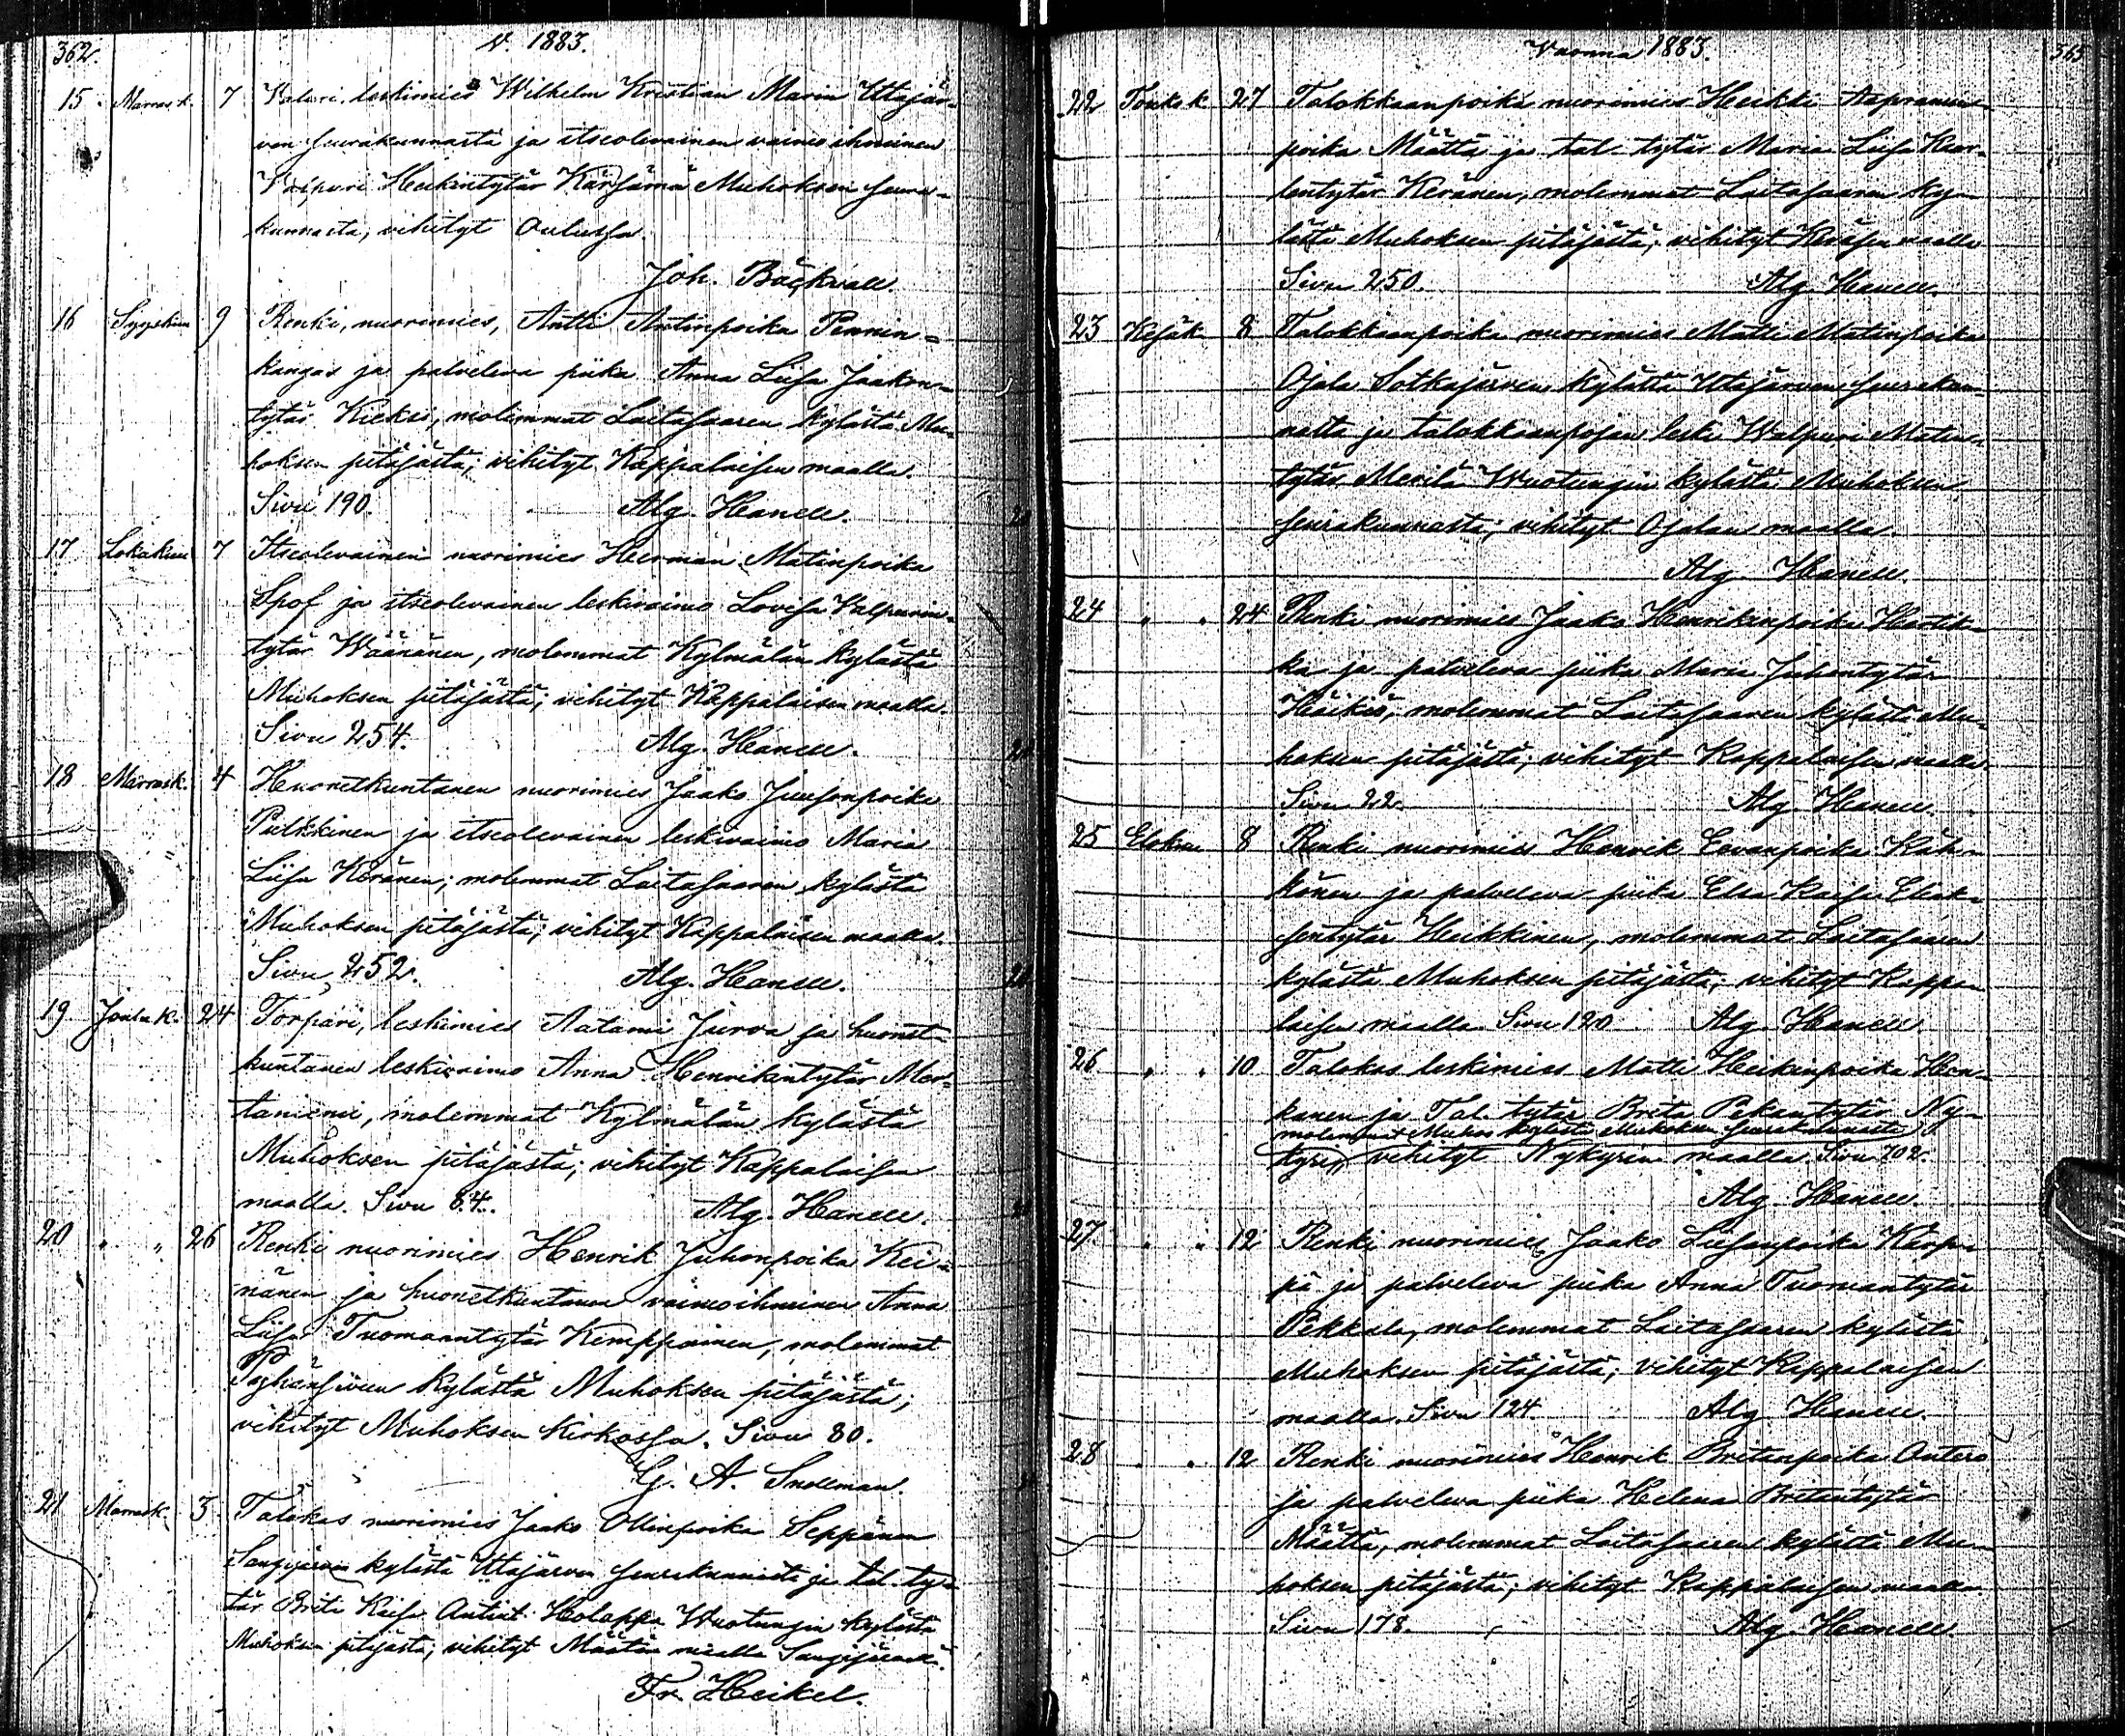 362.
V. 1883.
15 Marras k. 7 leskimies Wilhelm Kristian Marin Utajär-
ven seurakunnasta ja itseolevainen vaimo ihminen
Valpuri Heikintytär Kärsämä Muhoksen seura-
kunnasta, vihityt Oulussa.
Joh. Bäckvall.
16 Syyskuu 9 Renki, nuorimies, Antti Antinpoika Pennin-
kangas ja palveleva piika Anna Liisa Jaakon-
tytär Kieksi, molemmat Laitasaaren kylästä Mu-
hoksen pitäjästä; vihityt Kappalaisen maalla.
Sivu 190. Alg. Hanell.
17 Lokakuu 7 Itseolevainen nuorimies Herman Matinpoika
Spof ja itseolevainen leskivaimo Lovisa Valpurin-
tytär Wäänänen, molemmat Kylmälän kylästä
Muhoksen pitäjästä; vihityt Kappalaisen maalla.
Sivu 254. Alg. Hanell.
18 Marrask. 4 Huonetkuntanen nuorimies Jaako Juusonpoika
Pulkkinen ja itseolevainen leskivaimo Maria
Liisa Keränen; molemmat Laitasaaren kylästä
Muhoksen pitäjästä; vihityt Kappalaisen maalla.
Sivu 252. Alg. Hanell.
19 Joulu k. 24 Torpari, leskimies Aatami Jurva ja huonet-
kuntanen leskivaimo Anna Henrikintytär Mor-
taniemi, molemmat Kylmälän kylästä
Muhoksen pitäjästä; vihityt Kappalaisen
maalla. Sivu 84. Alg. Hanell.
20 " " 26 Renki nuorimies Henrik Juhonpoika Kei-
nänen ja huonetkuntanen vaimoihminen Anna
Liisa Tuomaantytär Kemppainen, molemmat
Pyhänsivun kylästä Muhoksen pitäjästä;
vihityt Muhoksen kirkossa. Sivu 80.
G. A. Snellman.
21 Marrask. 3 Talokas nuorimies Jaako Ollinpoika Seppänen
Sangijärven kylästä Utajärven seurakunnasta ja tal. ty-
tär Brita Kaisa Antint. Holappa Wuotungin kylästä
Muhoksen pitäjästä; vihityt Määtän maalla
Fr. Heikel.
Vuonna 1883.
363
22 Toukok. 27 Talokkaanpoika nuorimies Heikki Aapramin-
poika Määttä ja tal. tytär Maria Liisa Kaar-
lentytär Keränen, molemmat Laitasaaren ky-
lästä Muhoksen pitäjästä; vihityt Keräsen maalla
Sivu 250. Alg. Hanell.
23 Kesäk. 8 Talokkaanpoika nuorimies Matti Matinpoika
Ojala Sotkajärven kylästä Utajärven seurakun-
nasta ja talokkaanpojan leski Walpuri Matin-
tytär Merilä Wuotungin kylästä Muhoksen
seurakunnasta; vihityt Ojalan maalla.
Alg. Hanell.
24 " " 24 Renki nuorimies Jaako Henrikinpoika Hartik-
ka ja palveleva piika Maria Juhontytär
Häikiö, molemmat Laitasaaren kylästä Mu-
hoksen pitäjästä; vihityt Kappalaisen maalla.
Sivu 22. Alg. Hanell.
25 Elokuu 8 Renki nuorimies Henrik Eevanpoika Käh-
könen ja palveleva piika Elsa Kaisa Eliak-
sentytär Heikkinen, molemmat Laitasaaren
kylästä Muhoksen pitäjästä; vihityt Kappa-
laisen maalla. Sivu 120 Alg. Hanell.
26 " " 10 Talokas leskimies Matti Heikinpoika Hen-
kanen ja Tal. tytär Brita Pekantytär Ny-
molemmat Muhos kylästä Muhoksen seurakunnasta
kyri, vihityt Nykyrin maalla. Sivu 702.
Alg. Hanell.
27 " " 12 Renki nuorimies Jaako Liisanpoika Karp-
pi ja palveleva piika Anna Tuomantytär
Pekkala, molemmat Laitasaaren kylästä
Muhoksen pitäjästä; vihityt Kappalaisen
maalla. Sivu 124. Alg. Hanell.
28 " " 12 Renki nuorimies Henrik Britanpoika Antero
ja palveleva piika Helena Britantytär
Määttä, molemmat Laitasaaren kylästä Mu-
hoksen pitäjästä; vihityt Kappalaisen maalla
Sivu 178. Alg. Hanell.